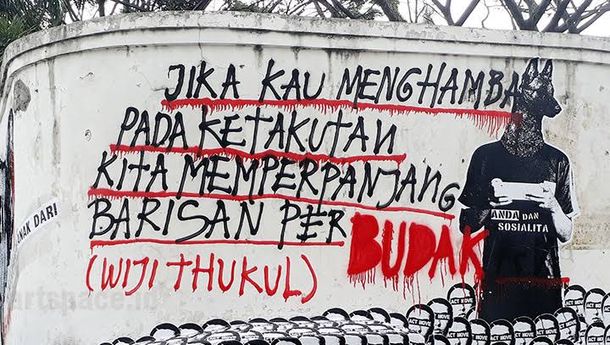 JIKA KAU MENGHAMBA
PADA KETAKUTAN
KITA MEMPERPANJANG
BARISAN PER BUDAK
(WIJI THUKUL)
NAK DARI
ANDA DAN
SOSIALITA
artspace.id
ACT MOVE
ACT MOVE
ACT MOVE
ACT MOVE